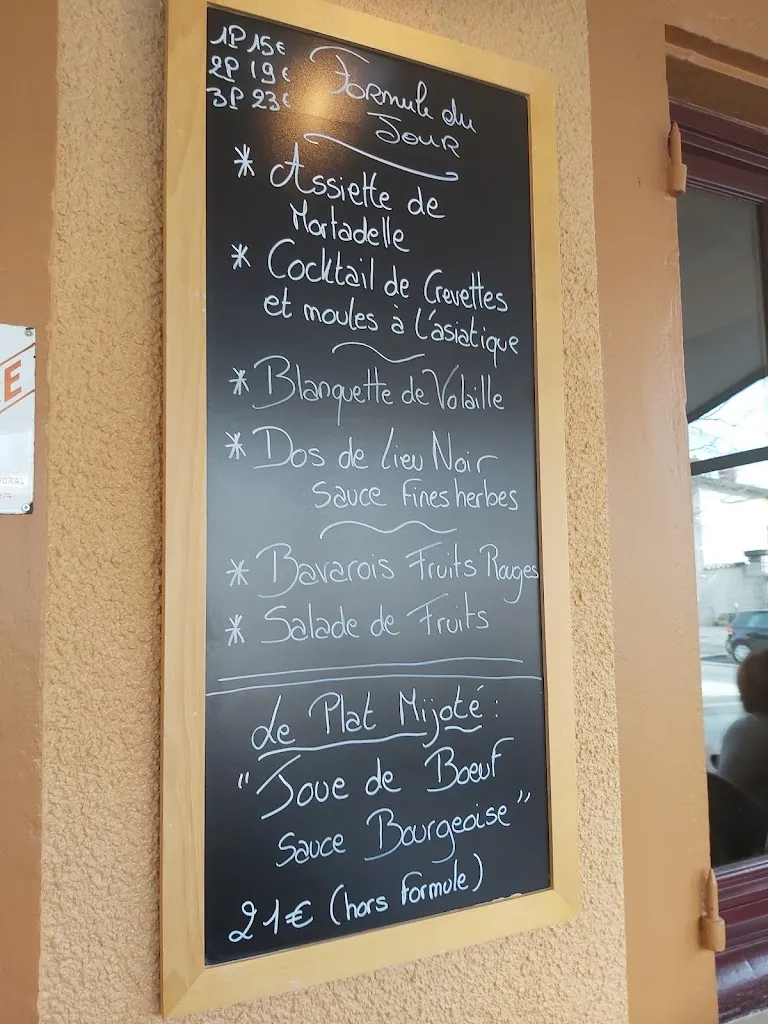 1P 15€
2P 19€
3P 23€
Formule du
Jour
* Assiette de
Mortadelle
* Cocktail de Crevettes
et moules à l'asiatique
* Blanquette de Volaille
* Dos de lieu Noir
Sauce Fines herbes
* Bavarois Fruits Rouges
* Salade de Fruits
Le Plat Mijoté :
"Joue de Boeuf
Sauce Bourgeoise"
21€ (hors Formule)
E